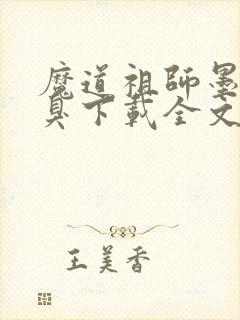 魔道祖師墨
臭下載全文
王美香